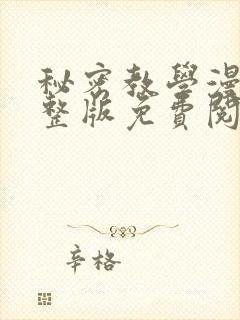 秘密教學漫
整版免費閱
辛格